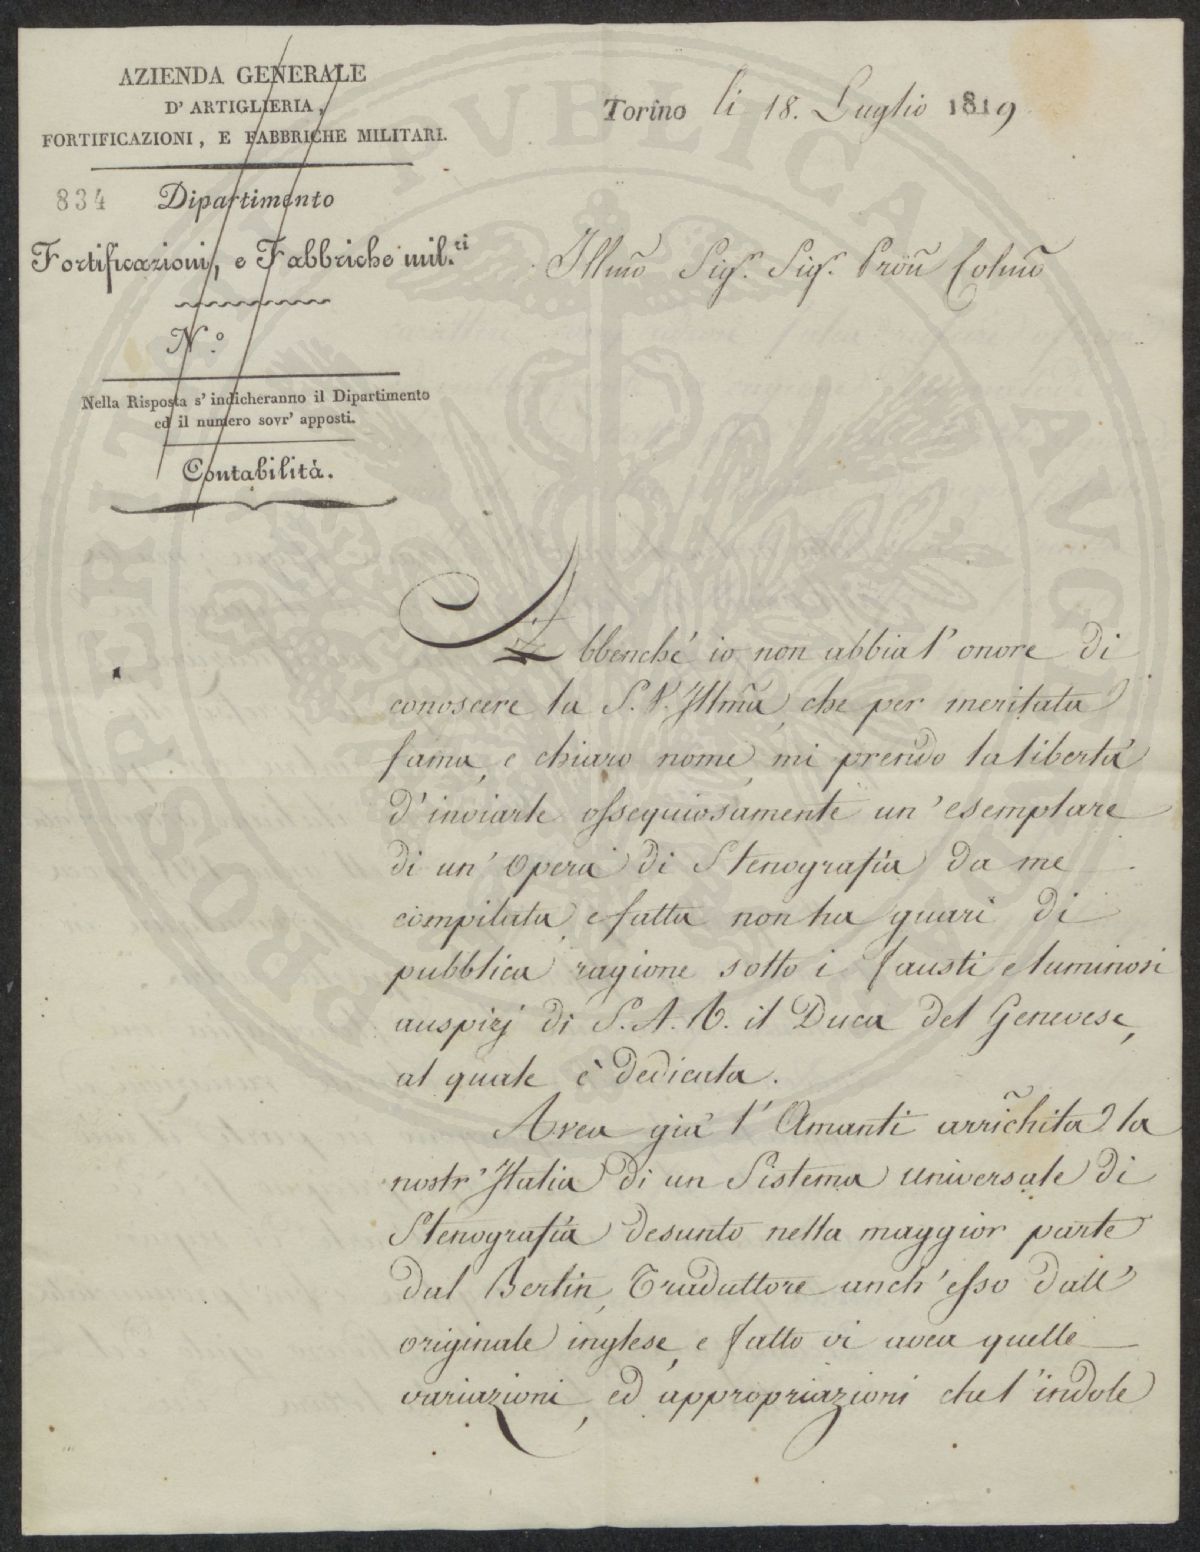 AZIENDA GENERALE
D' ARTIGLIERIA,
FORTIFICAZIONI, E FABBRICHE MILITARI.
834 Dipartimento
Fortificazioni, e Fabbriche mil.ri
N.o
Nella Risposta s' indicheranno il Dipartimento
ed il numero sovr' apposti.
Contabilità.
Torino li 18. Luglio 1819
Illmo Sigr. Sigr. Pron Colmo
Ebbenché io non abbia l' onore di
conoscere la S. V. Illma, che per meritata
fama, e chiaro nome, mi prendo la libertà
d' inviarle ossequiosamente un' esemplare
di un' Opera di Stenografia da me
compilata, e fatta non ha guari di
pubblica ragione sotto i fausti e luminosi
auspizj di S. A. R. il Duca del Genevese,
al quale è dedicata.
Avea già l' Amanti arrichita la
nostr' Italia di un Sistema universale di
Stenografia desunto nella maggior parte
dal Bertin, Traduttore anch' esso dall'
originale inglese, e fatto vi avea quelle
variazioni, ed appropriazioni che l' indole